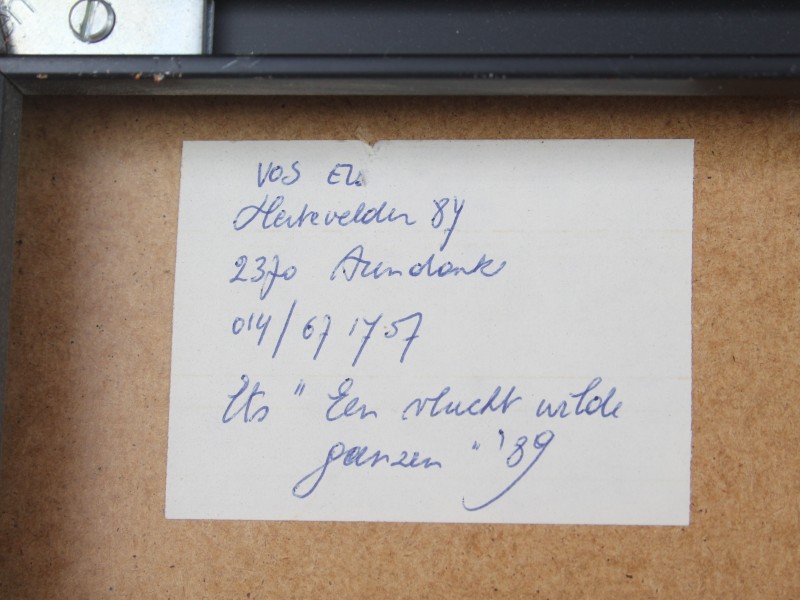 VOS EL.
Hertevelden 84
2370 Arendonk
014/67 17 57
Ets "Een vlucht wilde
ganzen" '89